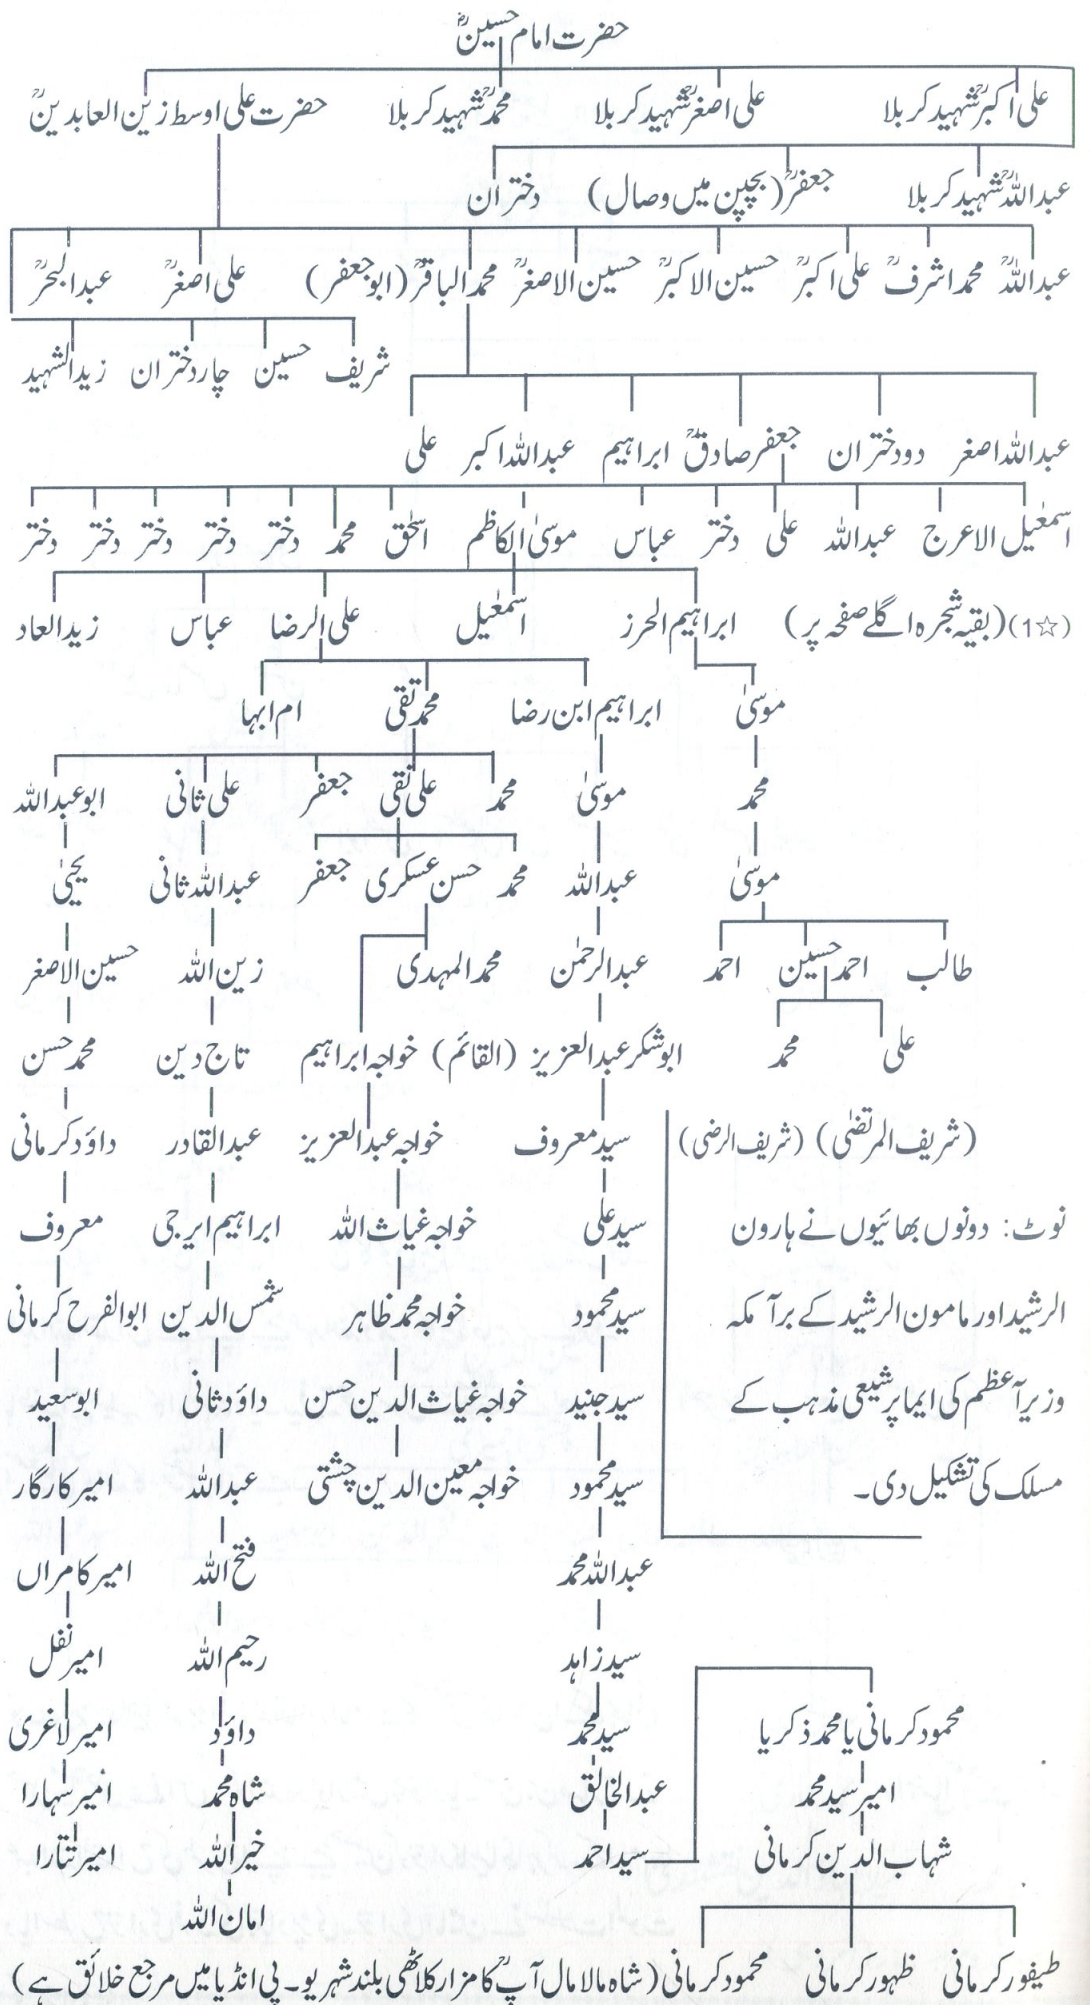 حضرت امام حسینؓ
علی اکبرؒ شہید کربلا علی اصغرؒ شہید کربلا محمدؒ شہید کربلا حضرت علی اوسط زین العابدینؒ
عبداللہؒ شہید کربلا جعفرؒ (بچپن میں وصال) دختران
عبداللہؒ محمد اشرفؒ علی اکبرؒ حسین الاکبرؒ حسین الاصغرؒ محمد الباقرؒ (ابو جعفر) علی اصغرؒ عبدالبحرؒ
شریف حسین چار دختران زید الشہید
عبداللہ اصغر دو دختران جعفر صادقؒ ابراہیم عبداللہ اکبر علی
اسمٰعیل الاعرج عبداللہ علی دختر عباس موسیٰ الکاظم اسحٰق محمد دختر دختر دختر دختر دختر
(1☆) (بقیہ شجرہ اگلے صفحہ پر) ابراہیم الحرز اسمٰعیل علی الرضا عباس زید العاد
موسیٰ ابراہیم ابن رضا محمد تقی ام ابہا
محمد موسیٰ محمد علی نقی جعفر علی ثانی ابو عبداللہ
موسیٰ عبداللہ محمد حسن عسکری جعفر عبداللہ ثانی یحییٰ
طالب احمد حسین احمد عبدالرحمٰن محمد المہدی زین اللہ حسین الاصغر
علی محمد ابوشکر عبدالعزیز (القائم) خواجہ ابراہیم تاج دین محمد حسن
(شریف المرتضٰی) (شریف الرضی) سید معروف خواجہ عبدالعزیز عبدالقادر داؤد کرمانی
نوٹ: دونوں بھائیوں نے ہارون سید علی خواجہ غیاث اللہ ابراہیم ایرجی معروف
الرشید اور مامون الرشید کے برآمکہ سید محمود خواجہ محمد ظاہر شمس الدین ابوالفرح کرمانی
وزیرآعظم کی ایما پر شیعی مذہب کے سید جنید خواجہ غیاث الدین حسن داؤد ثانی ابو سعید
مسلک کی تشکیل دی۔ سید محمود خواجہ معین الدین چشتی عبداللہ امیر کارگار
عبداللہ محمد فتح اللہ امیر کامراں
سید زاہد رحیم اللہ امیر نفل
محمود کرمانی یا محمد ذکریا سید محمد داؤد امیر لاغری
امیر سید محمد عبدالخالق شاہ محمد امیر سہارا
شہاب الدین کرمانی سید احمد خیر اللہ امیر تتارا
امان اللہ
طیفور کرمانی ظہور کرمانی محمود کرمانی (شاہ مالا مال آپؒ کا مزار کلاٹھی بلند شہر یو۔ پی انڈیا میں مرجع خلائق ہے)